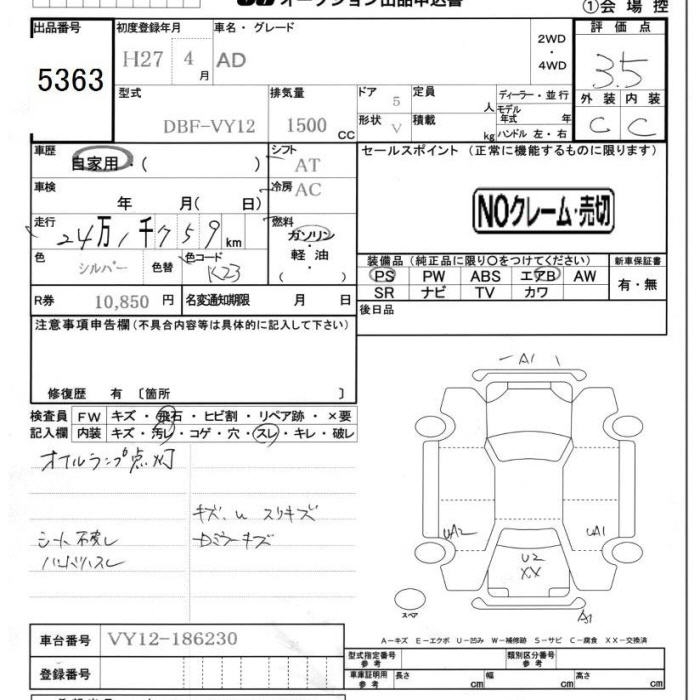 オークション出品申込書
①会場控
出品番号 初度登録年月 車名・グレード 評価点
5363 H27 4月 AD 2WD・4WD 3.5
型式 排気量 ドア 定員 ディーラー・並行 外装 内装
DBF-VY12 1500 CC 5 人 モデル年式 年 C C
形状 V 積載 kg ハンドル 左・右
車歴 自家用・( ) シフト AT セールスポイント (正常に機能するものに限ります)
車検 年 月( 日) 冷房 AC
NOクレーム・売切
走行 24万1千759km 燃料 ガソリン・軽油・( )
色 シルバー 色替 色コード K23
装備品 (純正品に限り○をつけてください) 新車保証書
PS PW ABS エアB AW 有・無
SR ナビ TV カワ
R券 10,850円 名変通知期限 月 日 後日品
注意事項申告欄 (不具合内容等は具体的に記入して下さい)
修復歴 有 〔箇所 〕
検査員 FW キズ・飛石・ヒビ割・リペア跡・×要
記入欄 内装 キズ・汚レ・コゲ・穴・スレ・キレ・破レ
オイルランプ点灯
キズ、U スリキズ
シート破レ
ハンドルスレ
A1
UA2 UA1
U2
XX
A1
スペア
A-キズ E-エクボ U-凹み W-補修跡 S-サビ C-腐食 XX-交換済
車台番号 VY12-186230
型式指定番号 参考 類別区分番号 参考
登録番号
車庫証明用 参考 長さ cm 幅 cm 高さ cm